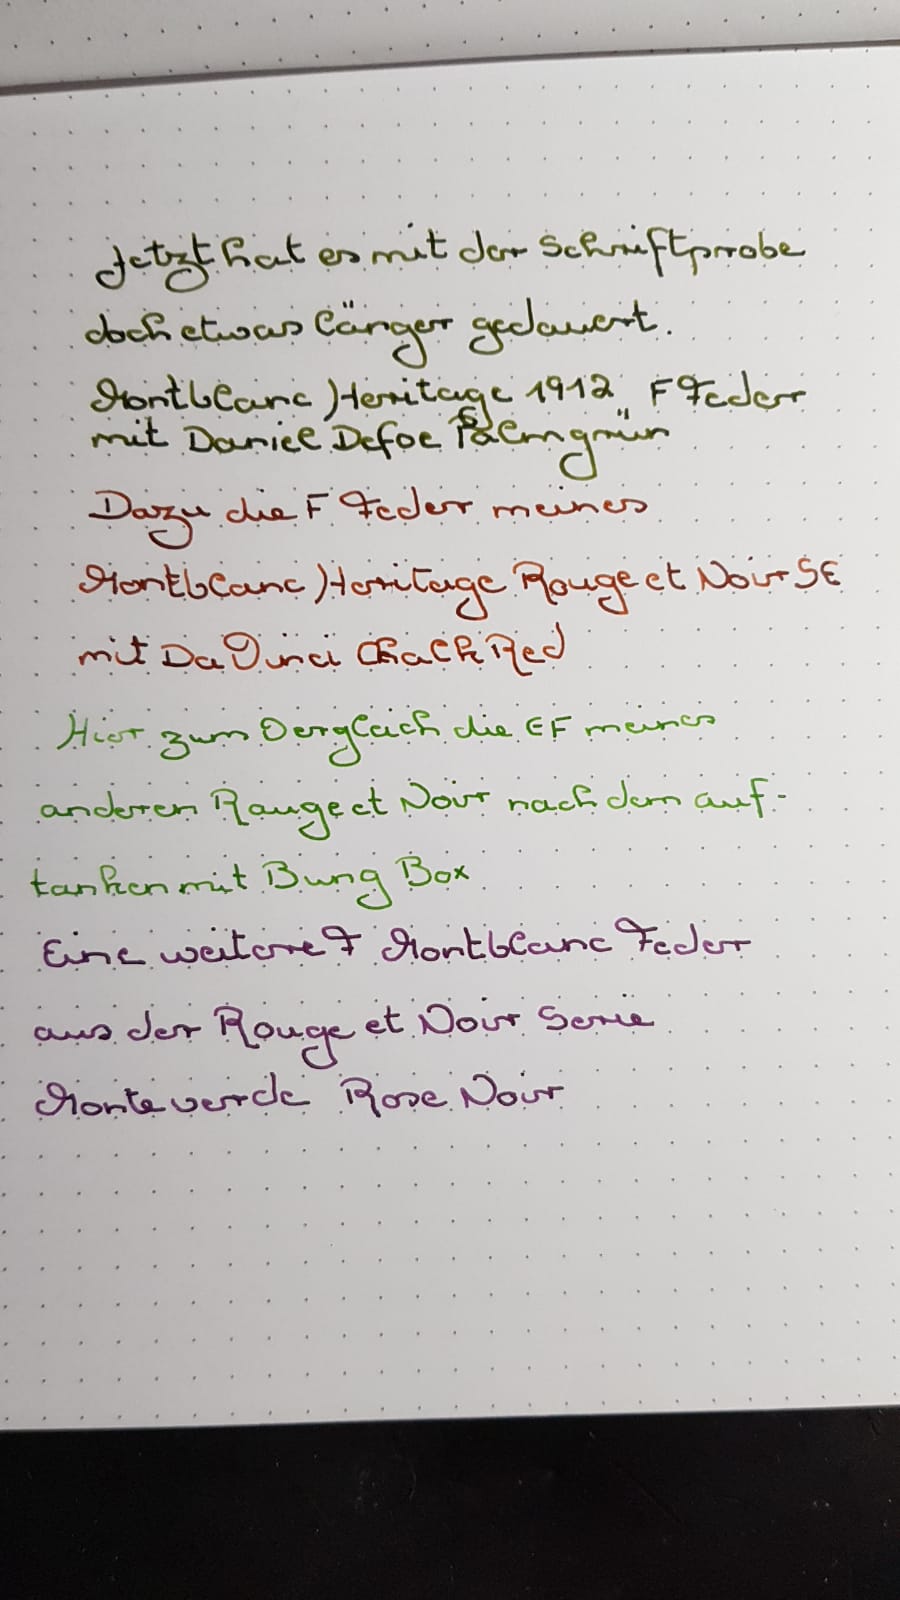 Jetzt hat es mit der Schriftprobe
doch etwas länger gedauert.
Montblanc Heritage 1912 F Feder
mit Daniel Defoe Palmgrün
Dazu die F Feder meines
Montblanc Heritage Rouge et Noir SE
mit Da Vinci Chalk Red
Hier zum Vergleich die EF meines
anderen Rouge et Noir nach dem auf-
tanken mit Bung Box
Eine weitere F Montblanc Feder
aus der Rouge et Noir Serie
Monteverde Rose Noir